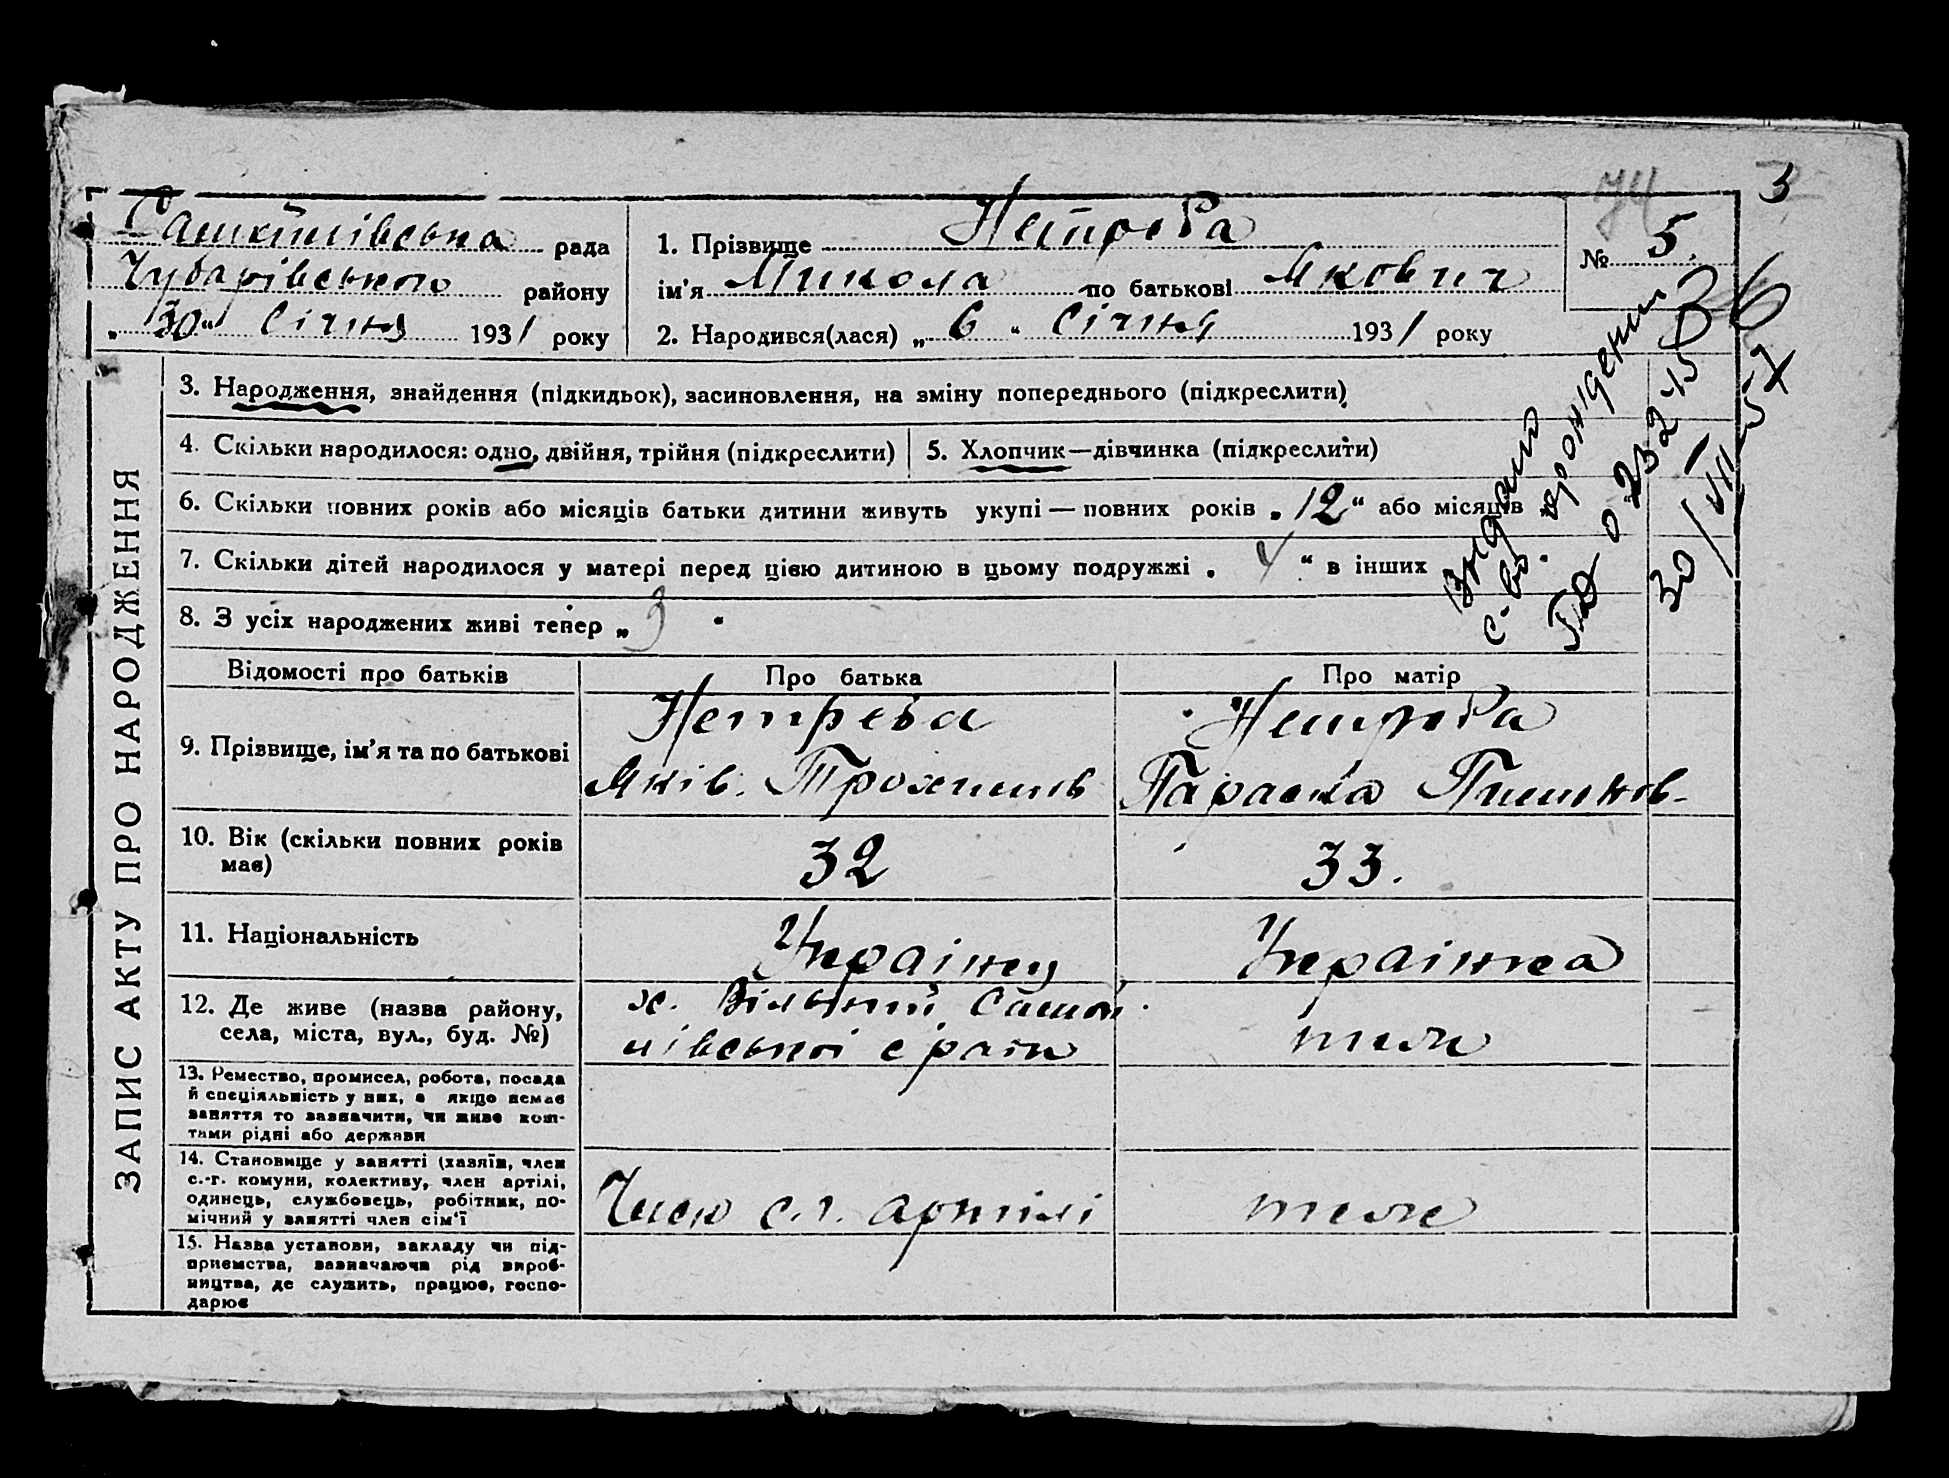 3
74
рада
Чубарівського району
„30“ Січня 1931 року
1. Прізвище Нетреба
ім'я Микола по батькові Якович
2. Народився(лася) „6“ Січня 1931 року
№ 5.
36
ЗАПИС АКТУ ПРО НАРОДЖЕННЯ
3. Народження, знайдення (підкидьок), засиновлення, на зміну попереднього (підкреслити)
4. Скільки народилося: одно, двійня, трійня (підкреслити)
5. Хлопчик—дівчинка (підкреслити)
6. Скільки повних років або місяців батьки дитини живуть укупі — повних років „12“ або місяців
7. Скільки дітей народилося у матері перед цією дитиною в цьому подружжі „4“ в інших
8. З усіх народжених живі тепер „3“
Выдано
с-во. о рождении
023245
30/
57
Відомості про батьків
Про батька
Про матір
9. Прізвище, ім'я та по батькові
Нетреба
Яків.
Нетреба
Параска
10. Вік (скільки повних років має)
32
33.
11. Національність
Українец
Українка
12. Де живе (назва району, села, міста, вул., буд. №)
х. Вільний
нівської с ради
теж
13. Ремество, промисел, робота, посада
й спеціяльність у них, а якщо немає
заняття то зазначити, чи живе кош-
тами рідні або держави
14. Становище у занятті (хазяїн, член
с.-г. комуни, колективу, член артілі,
одинець, службовець, робітник, по-
мічний у занятті член сім'ї
Член с.г. артілі
теж
15. Назва установи, закладу чи під-
приємства, зазначаючи рід вироб-
ництва, де служить, працює, госпо-
дарює